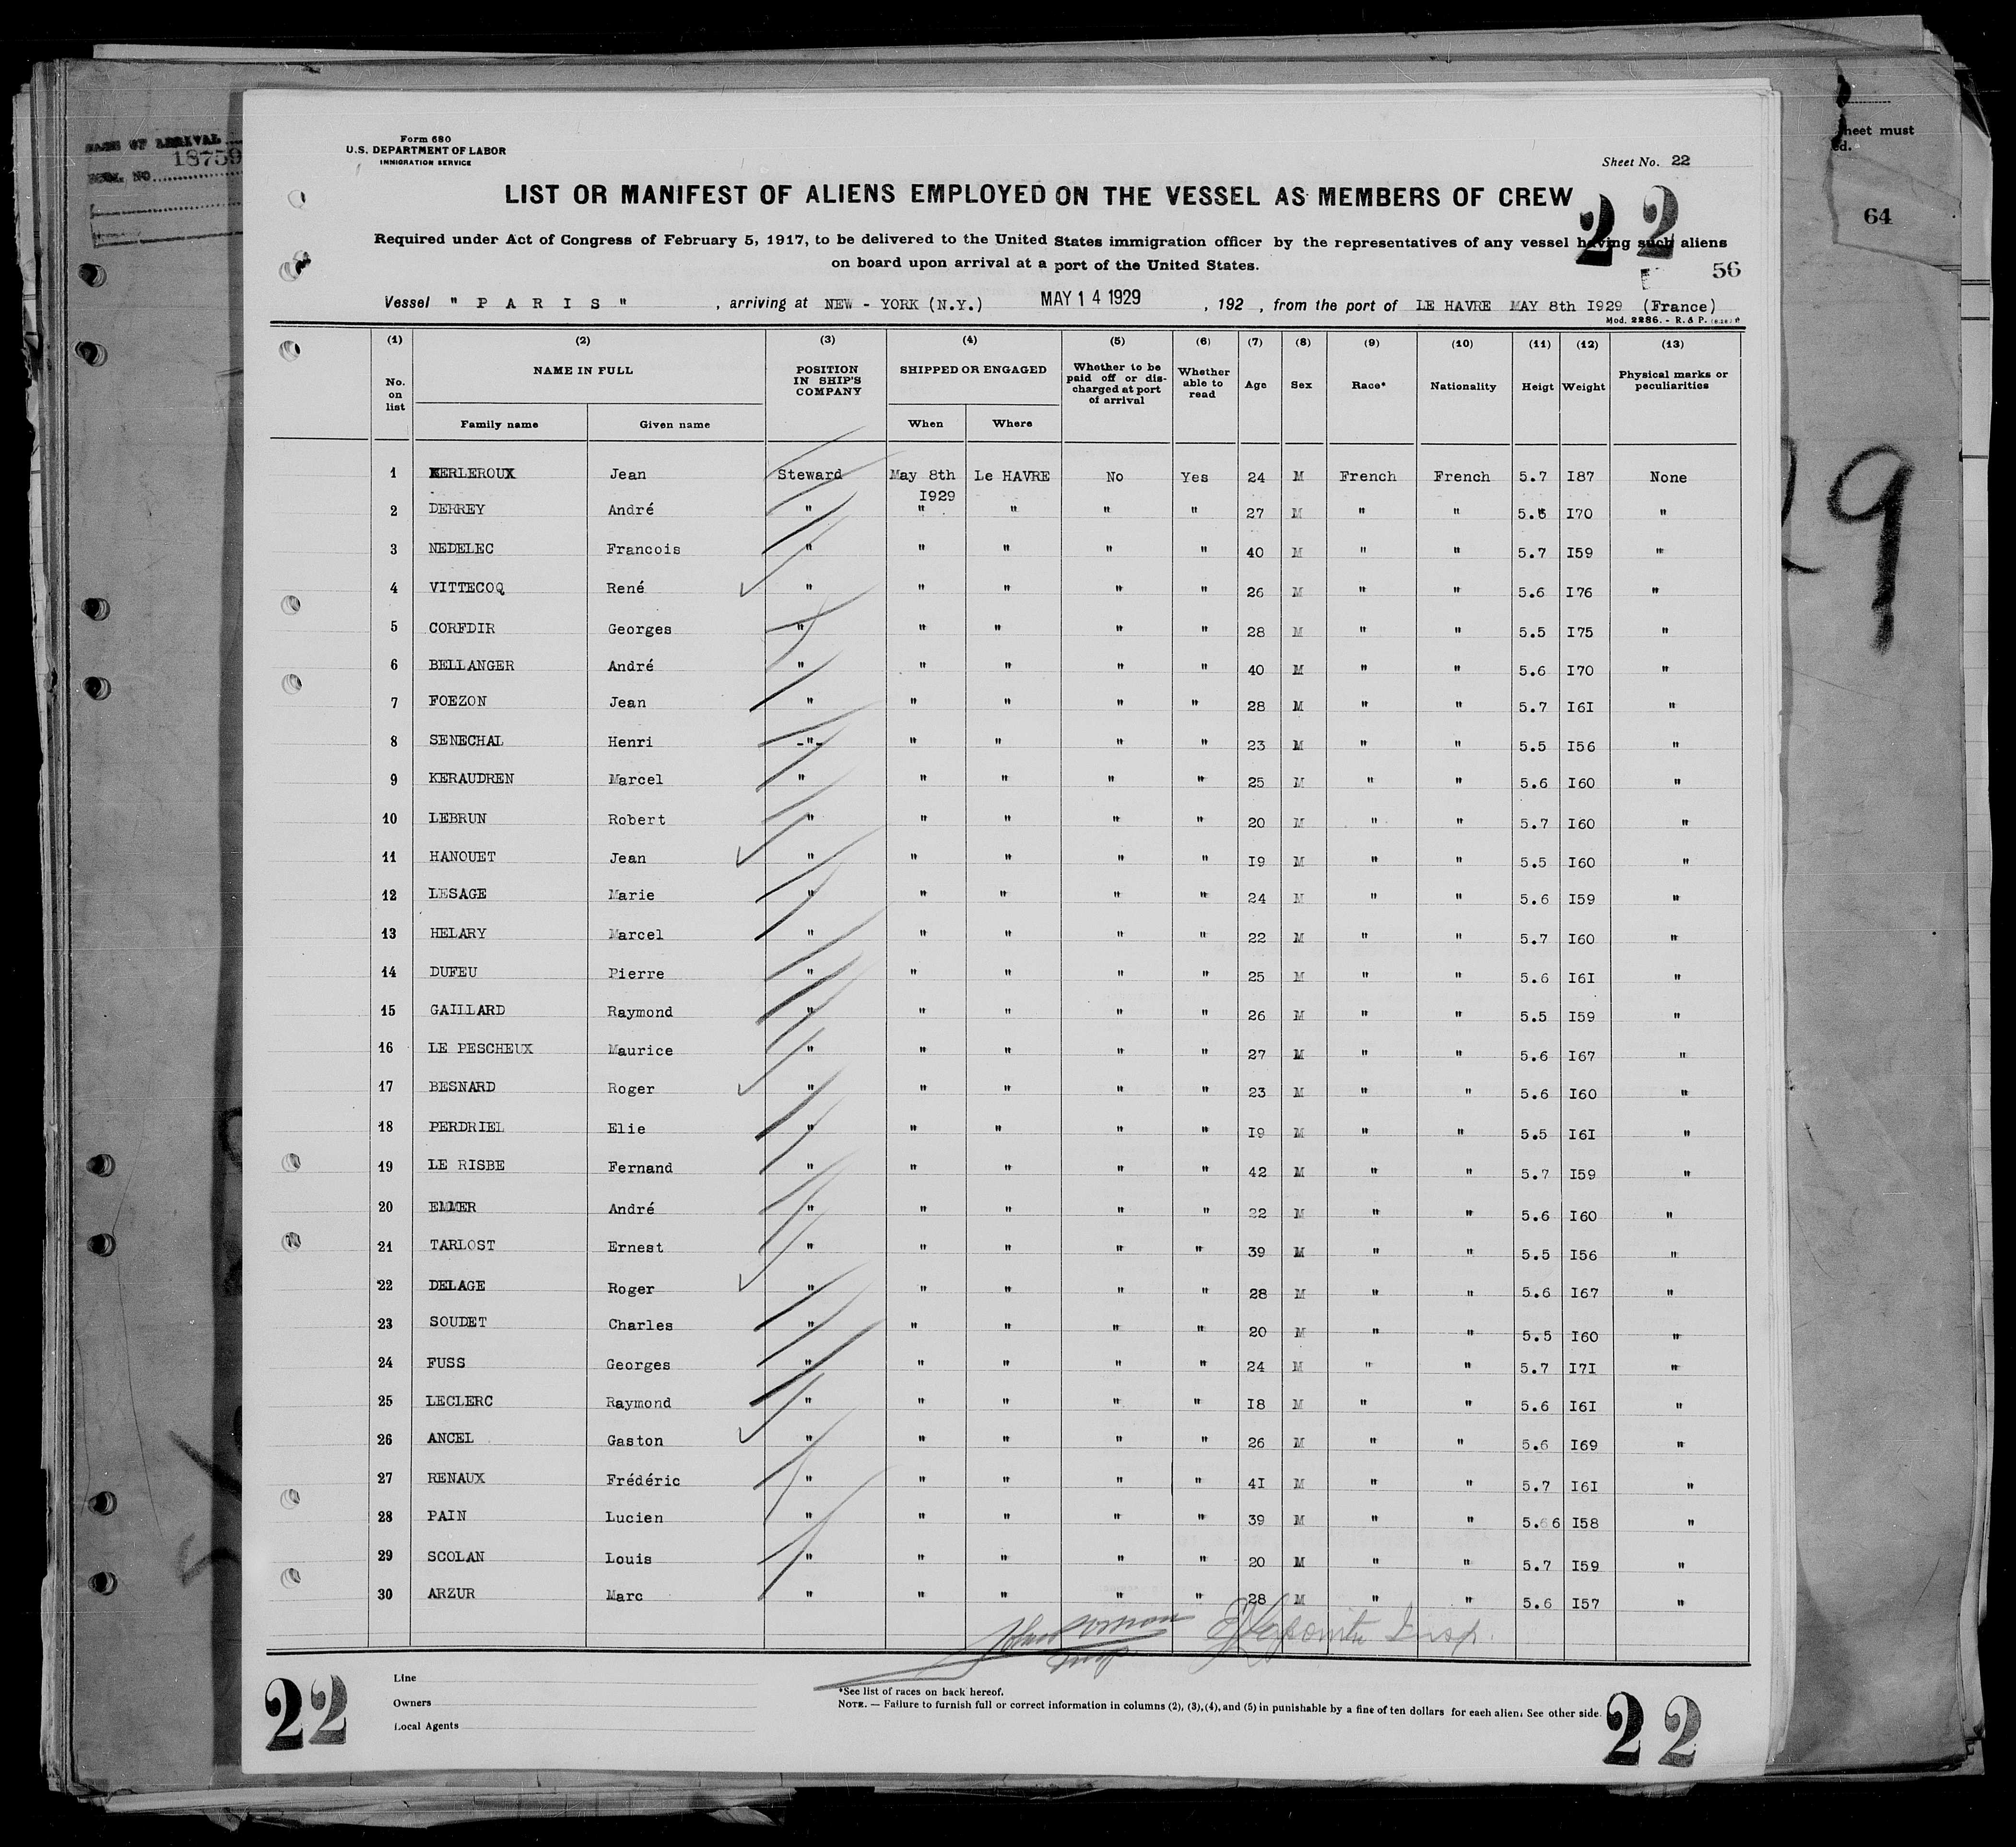 Form 680
U.S. DEPARTMENT OF LABOR
IMMIGRATION SERVICE
Sheet No. 22
LIST OR MANIFEST OF ALIENS EMPLOYED ON THE VESSEL AS MEMBERS OF CREW
22
Required under Act of Congress of February 5, 1917, to be delivered to the United States immigration officer by the representatives of any vessel having such aliens
on board upon arrival at a port of the United States.
56
Vessel " P A R I S " , arriving at NEW - YORK (N.Y.) MAY 14 1929 , 192 , from the port of LE HAVRE MAY 8th I929 (France)
Mod. 2286. - R. & P.
(1) (2) (3) (4) (5) (6) (7) (8) (9) (10) (11) (12) (13)
No. on list NAME IN FULL POSITION IN SHIP'S COMPANY SHIPPED OR ENGAGED Whether to be paid off or discharged at port of arrival Whether able to read Age Sex Race* Nationality Heigt Weight Physical marks or peculiarities
Family name Given name When Where
1 KERLEROUX Jean Steward May 8th I929 Le HAVRE No Yes 24 M French French 5.7 I87 None
2 DERREY André " " " " " 27 M " " 5.6 I70 "
3 NEDELEC Francois " " " " " 40 M " " 5.7 I59 "
4 VITTECOQ René " " " " " 26 M " " 5.6 I76 "
5 CORFDIR Georges " " " " " 28 M " " 5.5 I75 "
6 BELLANGER André " " " " " 40 M " " 5.6 I70 "
7 FOEZON Jean " " " " " 28 M " " 5.7 I6I "
8 SENECHAL Henri -"- " " " " 23 M " " 5.5 I56 "
9 KERAUDREN Marcel " " " " " 25 M " " 5.6 I60 "
10 LEBRUN Robert " " " " " 20 M " " 5.7 I60 "
11 HANOUET Jean " " " " " I9 M " " 5.5 I60 "
12 LESAGE Marie " " " " " 24 M " " 5.6 I59 "
13 HELARY Marcel " " " " " 22 M " " 5.7 I60 "
14 DUFEU Pierre " " " " " 25 M " " 5.6 I6I "
15 GAILLARD Raymond " " " " " 26 M " " 5.5 I59 "
16 LE PESCHEUX Maurice " " " " " 27 M " " 5.6 I67 "
17 BESNARD Roger " " " " " 23 M " " 5.6 I60 "
18 PERDRIEL Elie " " " " " I9 M " " 5.5 I6I "
19 LE RISBE Fernand " " " " " 42 M " " 5.7 I59 "
20 EMMER André " " " " " 22 M " " 5.6 I60 "
21 TARLOST Ernest " " " " " 39 M " " 5.5 I56 "
22 DELAGE Roger " " " " " 28 M " " 5.6 I67 "
23 SOUDET Charles " " " " " 20 M " " 5.5 I60 "
24 FUSS Georges " " " " " 24 M " " 5.7 I7I "
25 LECLERC Raymond " " " " " I8 M " " 5.6 I6I "
26 ANCEL Gaston " " " " " 26 M " " 5.6 I69 "
27 RENAUX Frédéric " " " " " 4I M " " 5.7 I6I "
28 PAIN Lucien " " " " " 39 M " " 5.66 I58 "
29 SCOLAN Louis " " " " " 20 M " " 5.7 I59 "
30 ARZUR Marc " " " " " 28 M " " 5.6 I57 "
Insp.
Insp
Line
Owners
Local Agents
*See list of races on back hereof.
NOTE. — Failure to furnish full or correct information in columns (2), (3), (4), and (5) in punishable by a fine of ten dollars for each alien. See other side.
22
22
18759
heet must
ed.
64
9